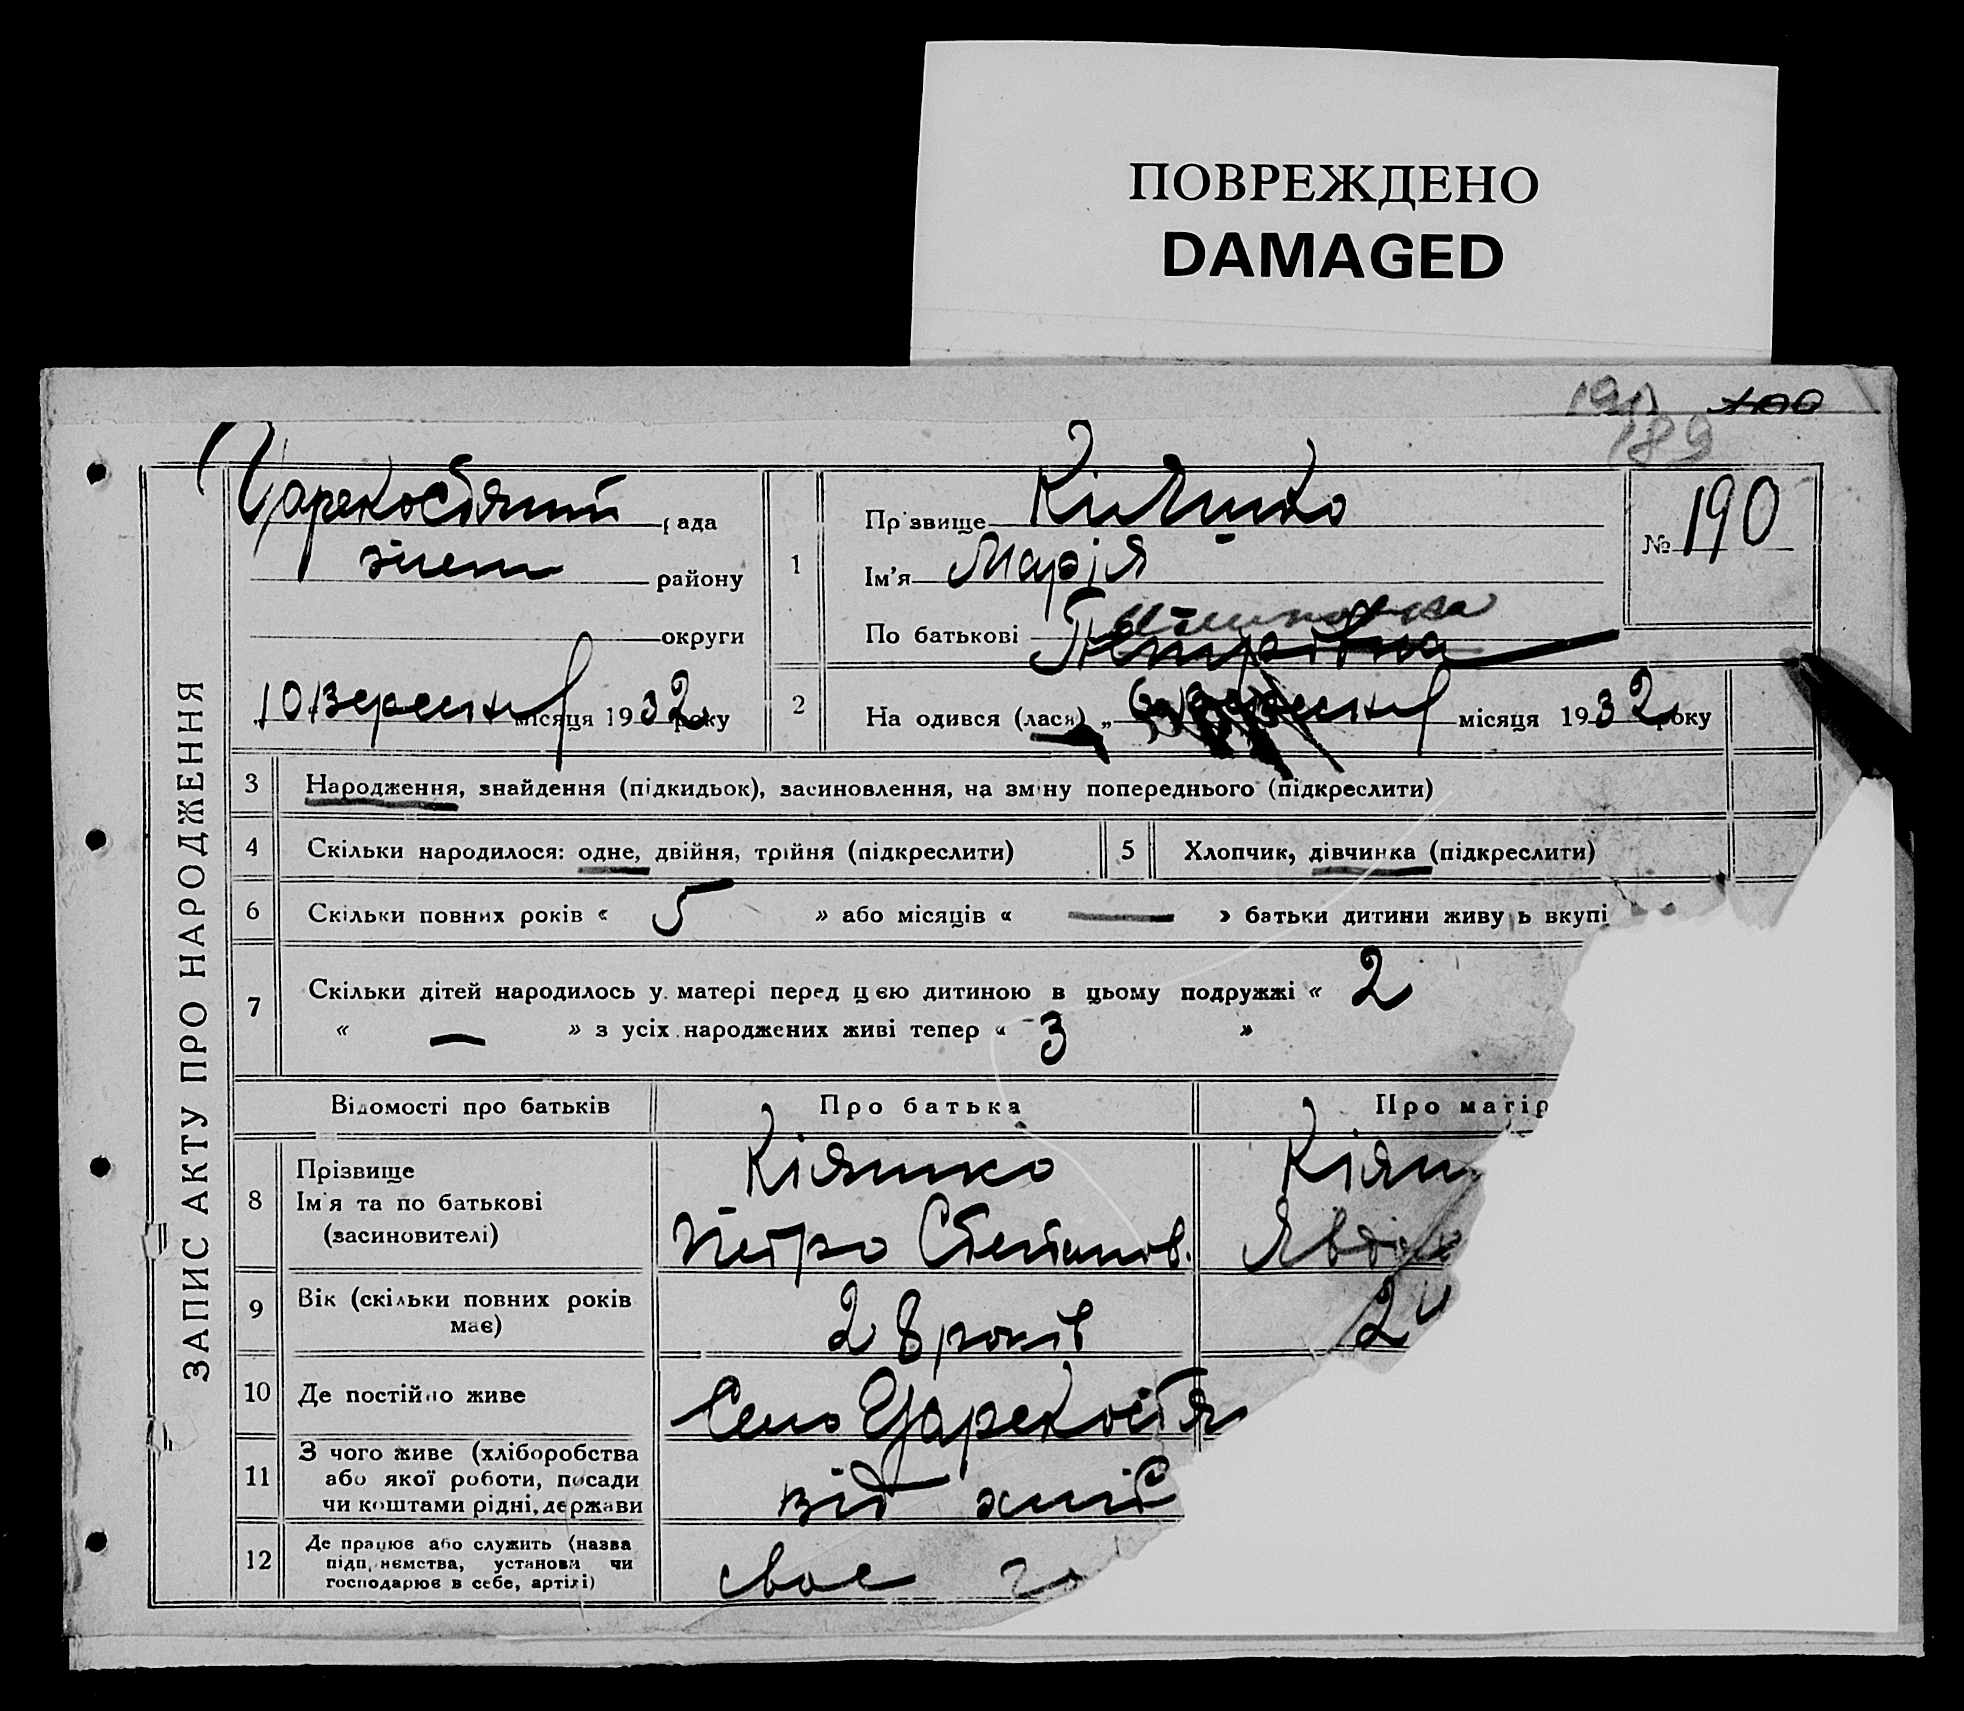 ПОВРЕЖДЕНО
DAMAGED
189
ЗАПИС АКТУ ПРО НАРОДЖЕННЯ
рада
району
округи
10 вересня місяця 1932 року
1
Прізвище Кіяшко
Ім'я Марія
По батькові Петрівна
№ 190
2
На одився (лася) „ вересня місяця 1932 року
3 Народження, знайдення (підкидьок), засиновлення, на зміну попереднього (підкреслити)
4 Скільки народилося: одне, двійня, трійня (підкреслити)
5 Хлопчик, дівчинка (підкреслити)
6 Скільки повних років « 5 » або місяців « — » батьки дитини живуть вкупі
7 Скільки дітей народилось у матері перед цією дитиною в цьому подружжі « 2
« — » з усіх народжених живі тепер « 3 »
Відомості про батьків Про батька Про матір
8 Прізвище
Ім'я та по батькові
(засиновителі)
Кіяшко
Петро Степанов.
Кіяш
Явдо
9 Вік (скільки повних років
має)
28 років
2
10 Де постійно живе
Село Царекостя
11 З чого живе (хліборобства
або якої роботи, посади
чи коштами рідні, держави
від
12 Де працює або служить (назва
підприємства, установи чи
господарює в себе, артілі)
своє го